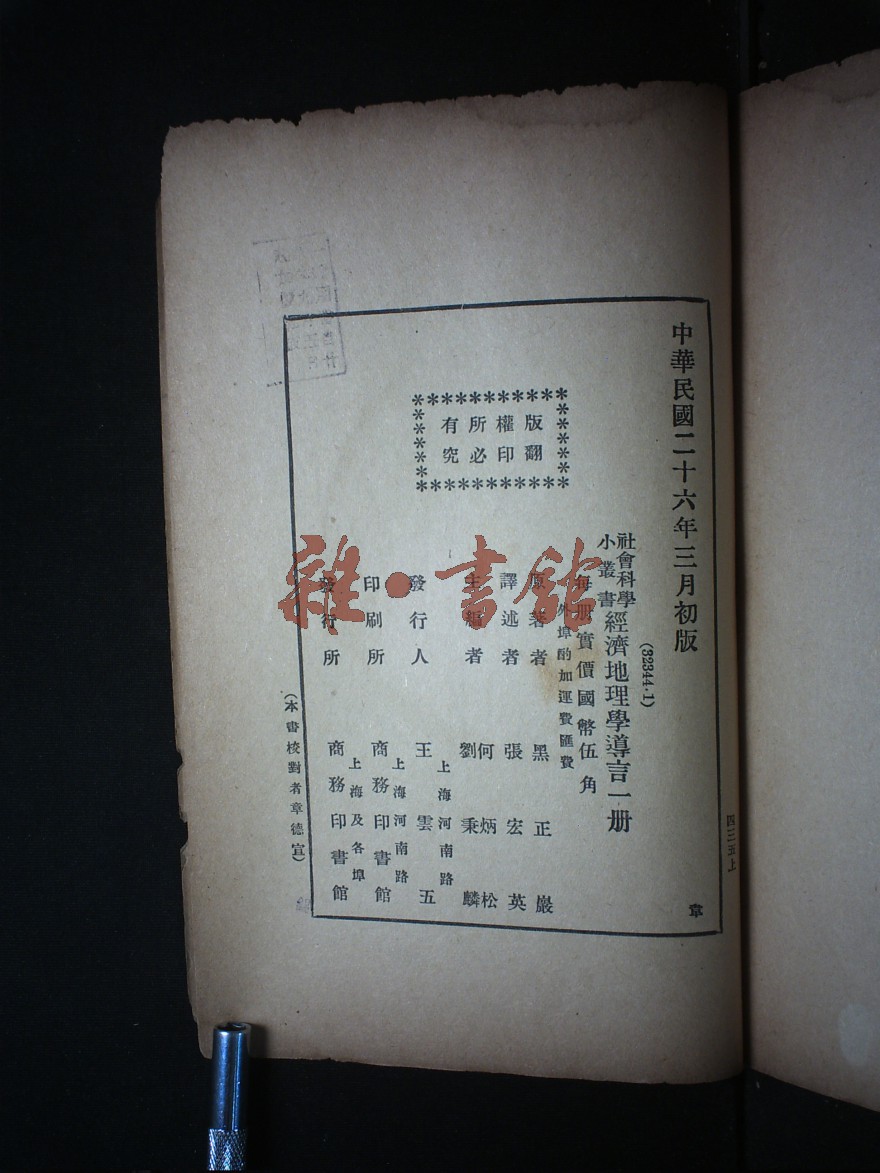 中華民國二十六年三月初版
(32344·1)
社會科學
小叢書
經濟地理學導言一册
每册實價國幣伍角
外埠酌加運費匯費
版權所有
翻印必究
原著者 黑正巖
譯述者 張宏英
主編者 何炳松
劉秉麟
發行人 王雲五
上海河南路
印刷所 商務印書館
上海河南路
發行所 商務印書館
上海及各埠
(本書校對者章德宣)
章
四三五上
雜·書館